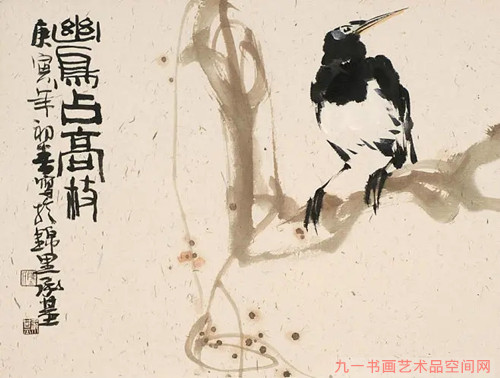 幽鳥占高枝
庚寅年初春寫於錦里承基
九一书画艺术品空间网